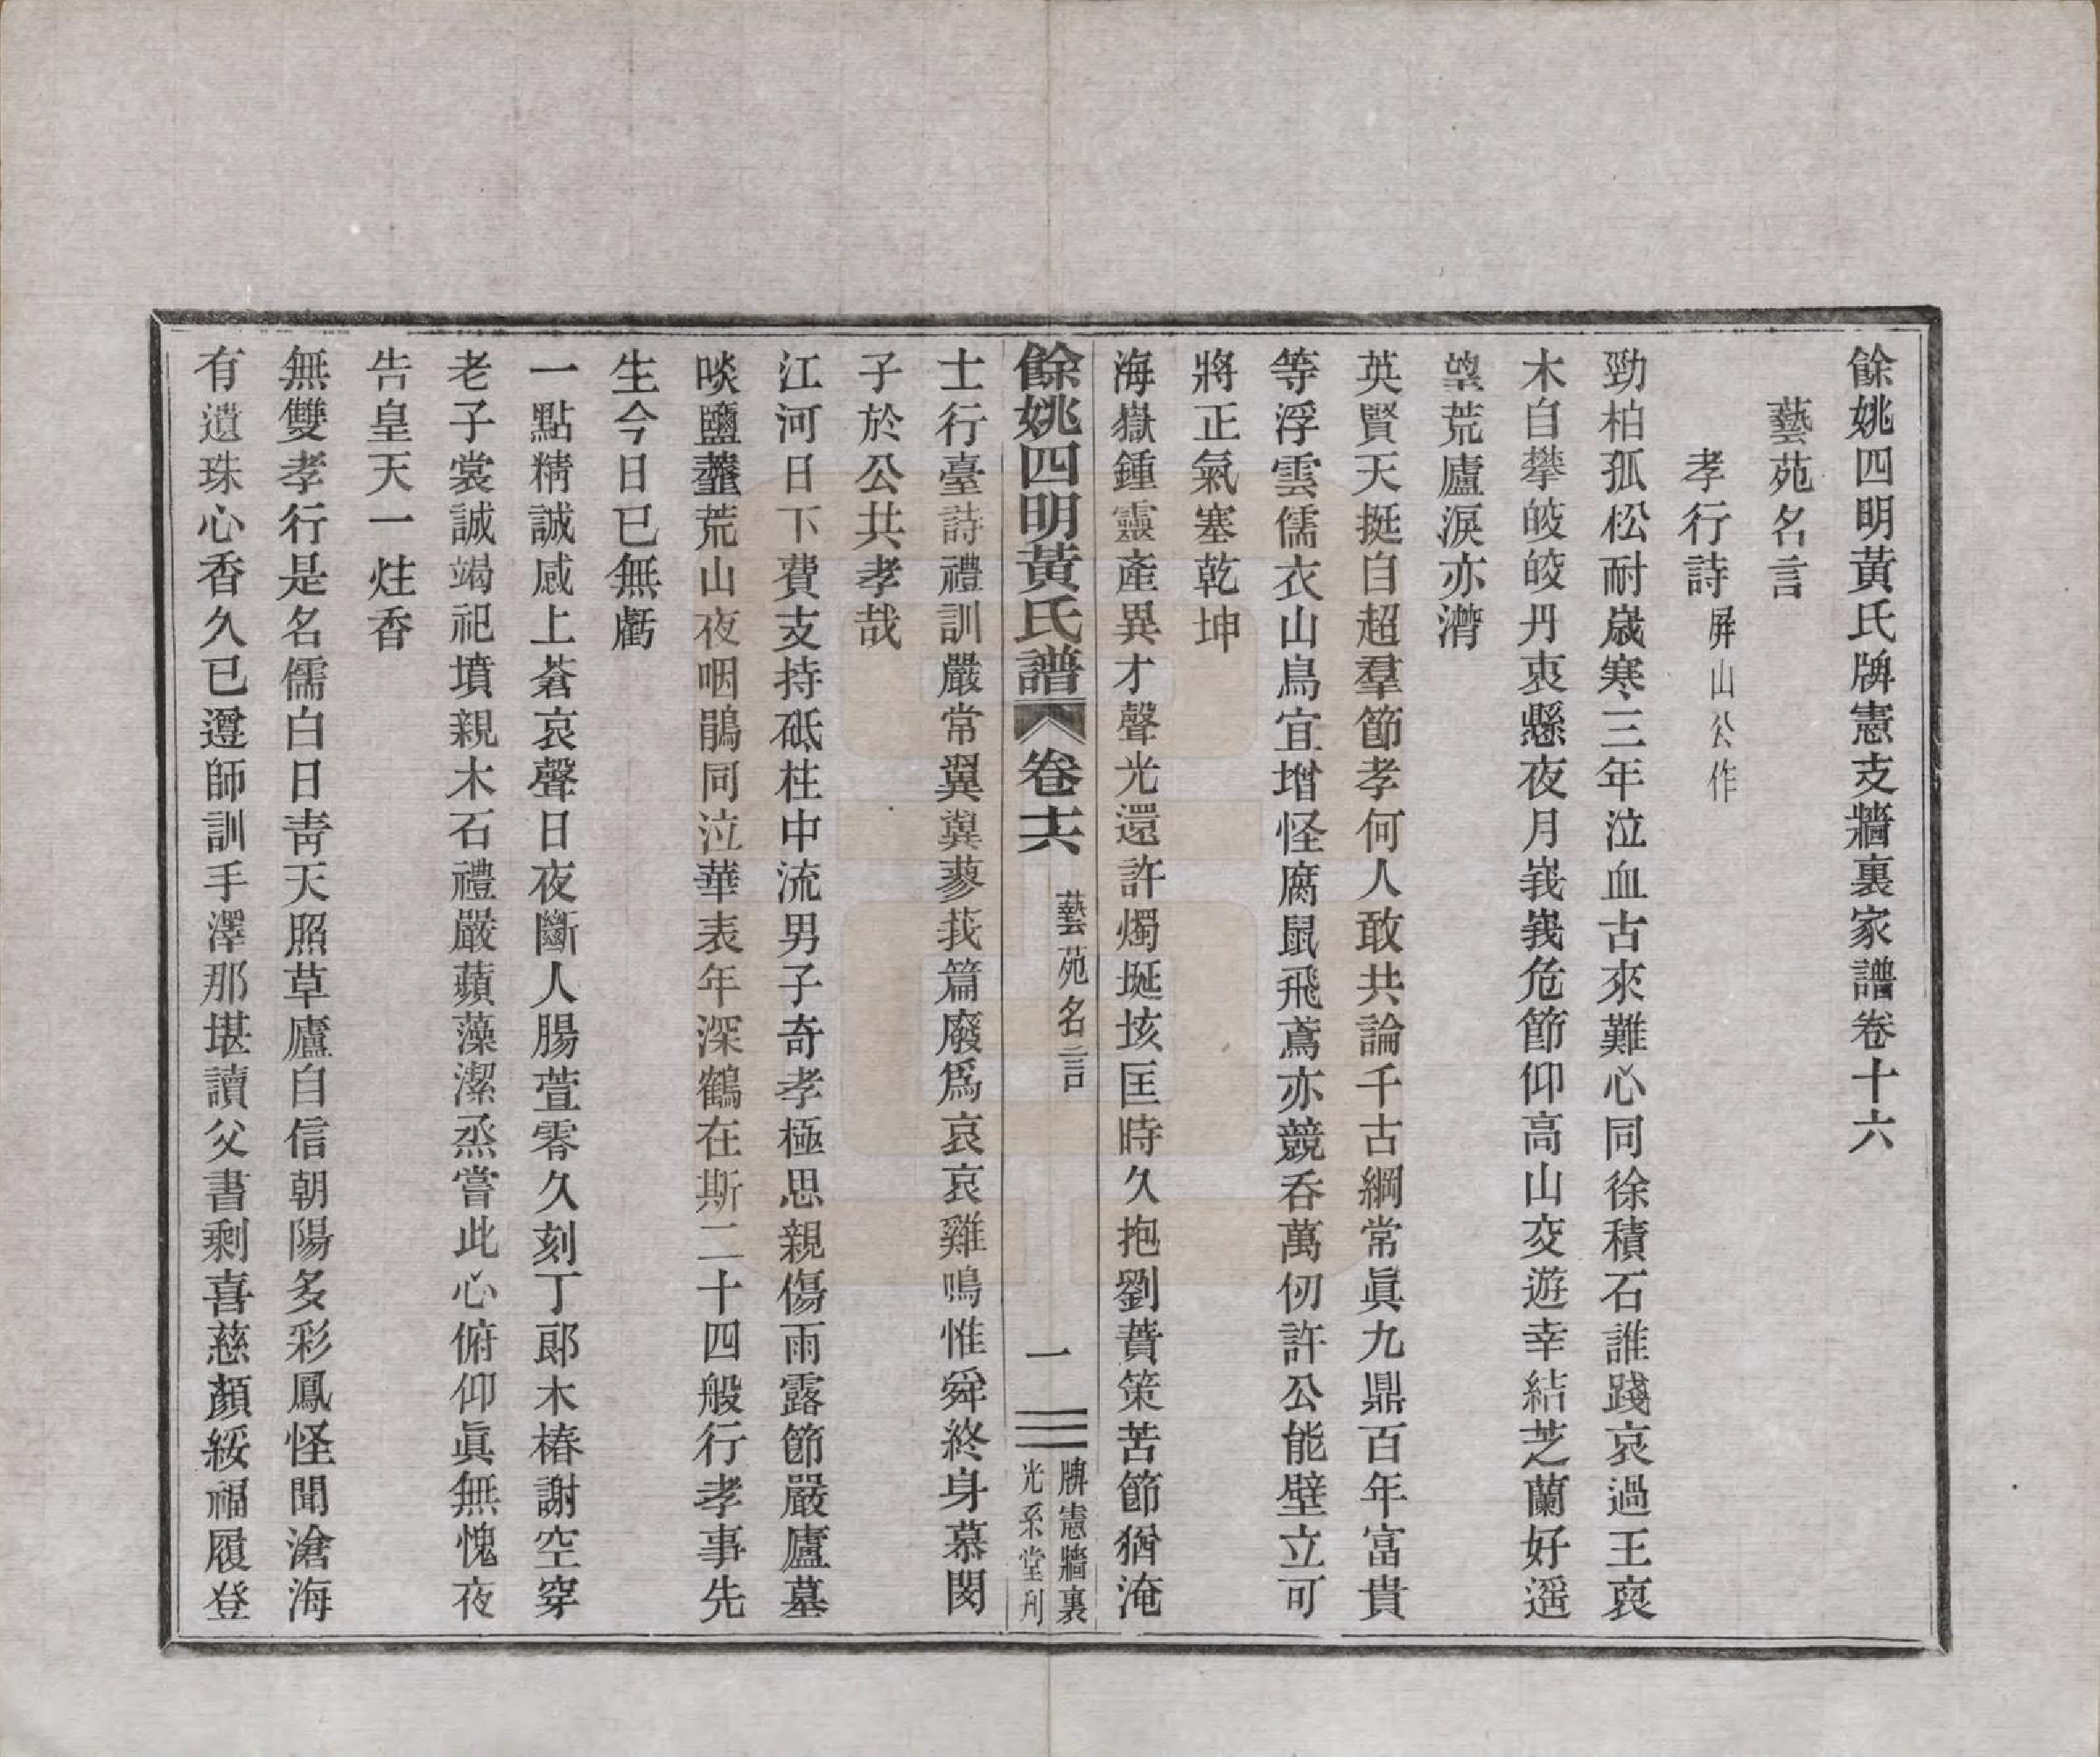 餘姚四明黃氏牌憲支牆裏家譜卷十六
藝苑名言
孝行詩屏山公作
勁柏孤松耐歲寒三年泣血古來難心同徐積石誰踐哀過王裒
木自攀皎皎丹衷懸夜月峩峩危節仰高山交遊幸結芝蘭好遥
望荒廬淚亦潸
英賢天挺自超羣節孝何人敢共論千古綱常眞九鼎百年富貴
等浮雲儒衣山鳥宜增怪腐鼠飛鳶亦競吞萬仞許公能壁立可
將正氣塞乾坤
海嶽鍾靈產異才聲光還許燭埏垓匡時久抱劉蕡策苦節猶淹
餘姚四明黃氏譜 卷十六 藝苑名言 一 牌憲牆裏光系堂刊
士行臺詩禮訓嚴常翼翼蓼莪篇廢爲哀哀雞鳴惟舜終身慕閔
子於公共孝哉
江河日下費支持砥柱中流男子奇孝極思親傷雨露節嚴廬墓
啖鹽虀荒山夜咽鵑同泣華表年深鶴在斯二十四般行孝事先
生今日已無虧
一點精誠感上蒼哀聲日夜斷人腸萱零久刻丁郎木椿謝空穿
老子裳誠竭祀墳親木石禮嚴蘋藻潔烝嘗此心俯仰眞無愧夜
告皇天一炷香
無雙孝行是名儒白日靑天照草廬自信朝陽多彩鳳怪聞滄海
有遺珠心香久已遵師訓手澤那堪讀父書剩喜慈顏綏福履登